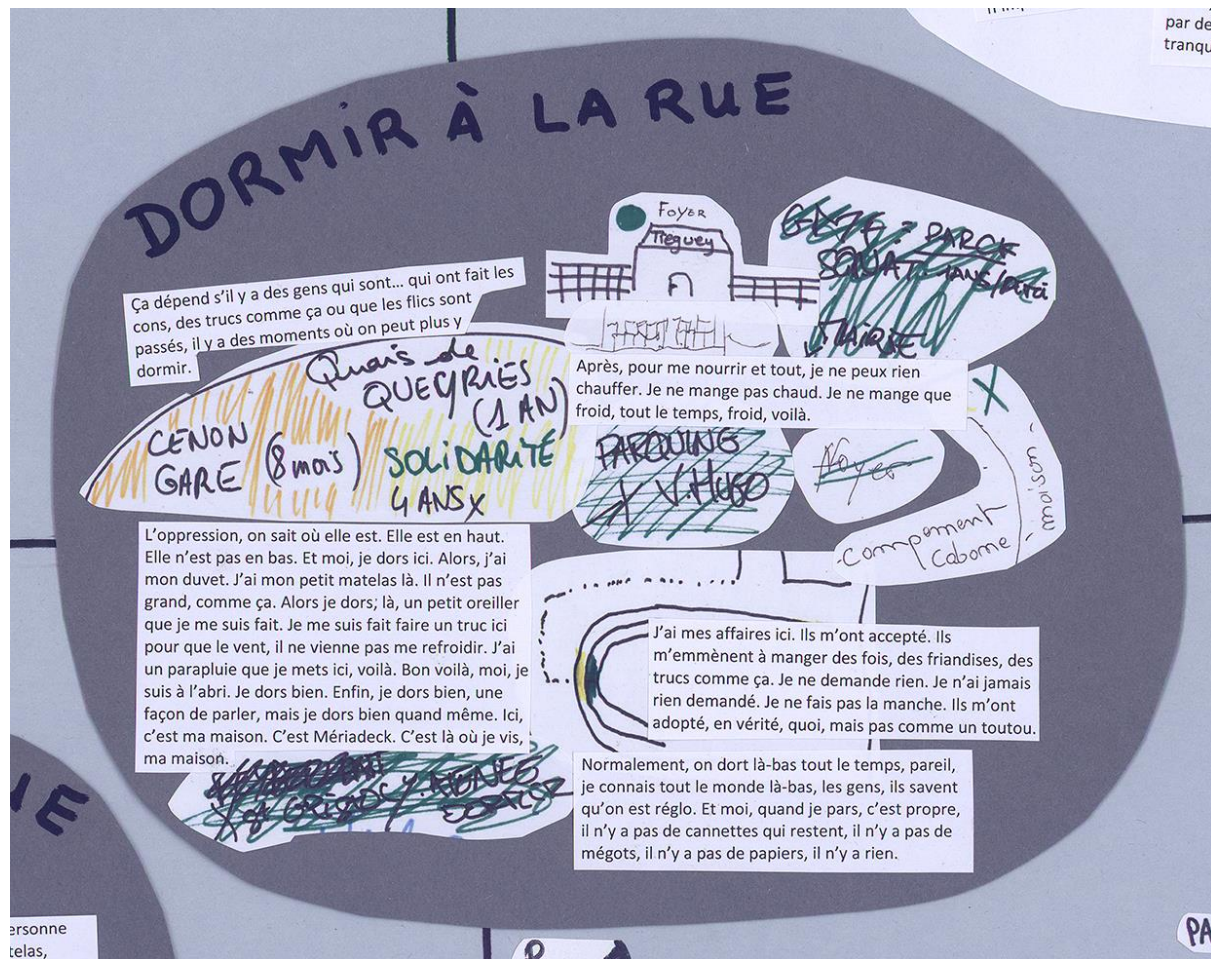 par de
tranqu
DORMIR À LA RUE
FOYER
Treguey
SQUAT
MAIRIE
Ça dépend s'il y a des gens qui sont... qui ont fait les
cons, des trucs comme ça ou que les flics sont
passés, il y a des moments où on peut plus y
dormir.
Quais de
QUEYRIES
(1 AN)
CENON
GARE (8 mois)
SOLIDARITÉ
4 ANS X
Après, pour me nourrir et tout, je ne peux rien
chauffer. Je ne mange pas chaud. Je ne mange que
froid, tout le temps, froid, voilà.
PARQUING
V. HUGO
X
maison
campement
cabane
L'oppression, on sait où elle est. Elle est en haut.
Elle n'est pas en bas. Et moi, je dors ici. Alors, j'ai
mon duvet. J'ai mon petit matelas là. Il n'est pas
grand, comme ça. Alors je dors; là, un petit oreiller
que je me suis fait. Je me suis fait faire un truc ici
pour que le vent, il ne vienne pas me refroidir. J'ai
un parapluie que je mets ici, voilà. Bon voilà, moi, je
suis à l'abri. Je dors bien. Enfin, je dors bien, une
façon de parler, mais je dors bien quand même. Ici,
c'est ma maison. C'est Mériadeck. C'est là où je vis,
ma maison.
J'ai mes affaires ici. Ils m'ont accepté. Ils
m'emmènent à manger des fois, des friandises, des
trucs comme ça. Je ne demande rien. Je n'ai jamais
rien demandé. Je ne fais pas la manche. Ils m'ont
adopté, en vérité, quoi, mais pas comme un toutou.
Normalement, on dort là-bas tout le temps, pareil,
je connais tout le monde là-bas, les gens, ils savent
qu'on est réglo. Et moi, quand je pars, c'est propre,
il n'y a pas de cannettes qui restent, il n'y a pas de
mégots, il n'y a pas de papiers, il n'y a rien.
ersonne
telas,
PA